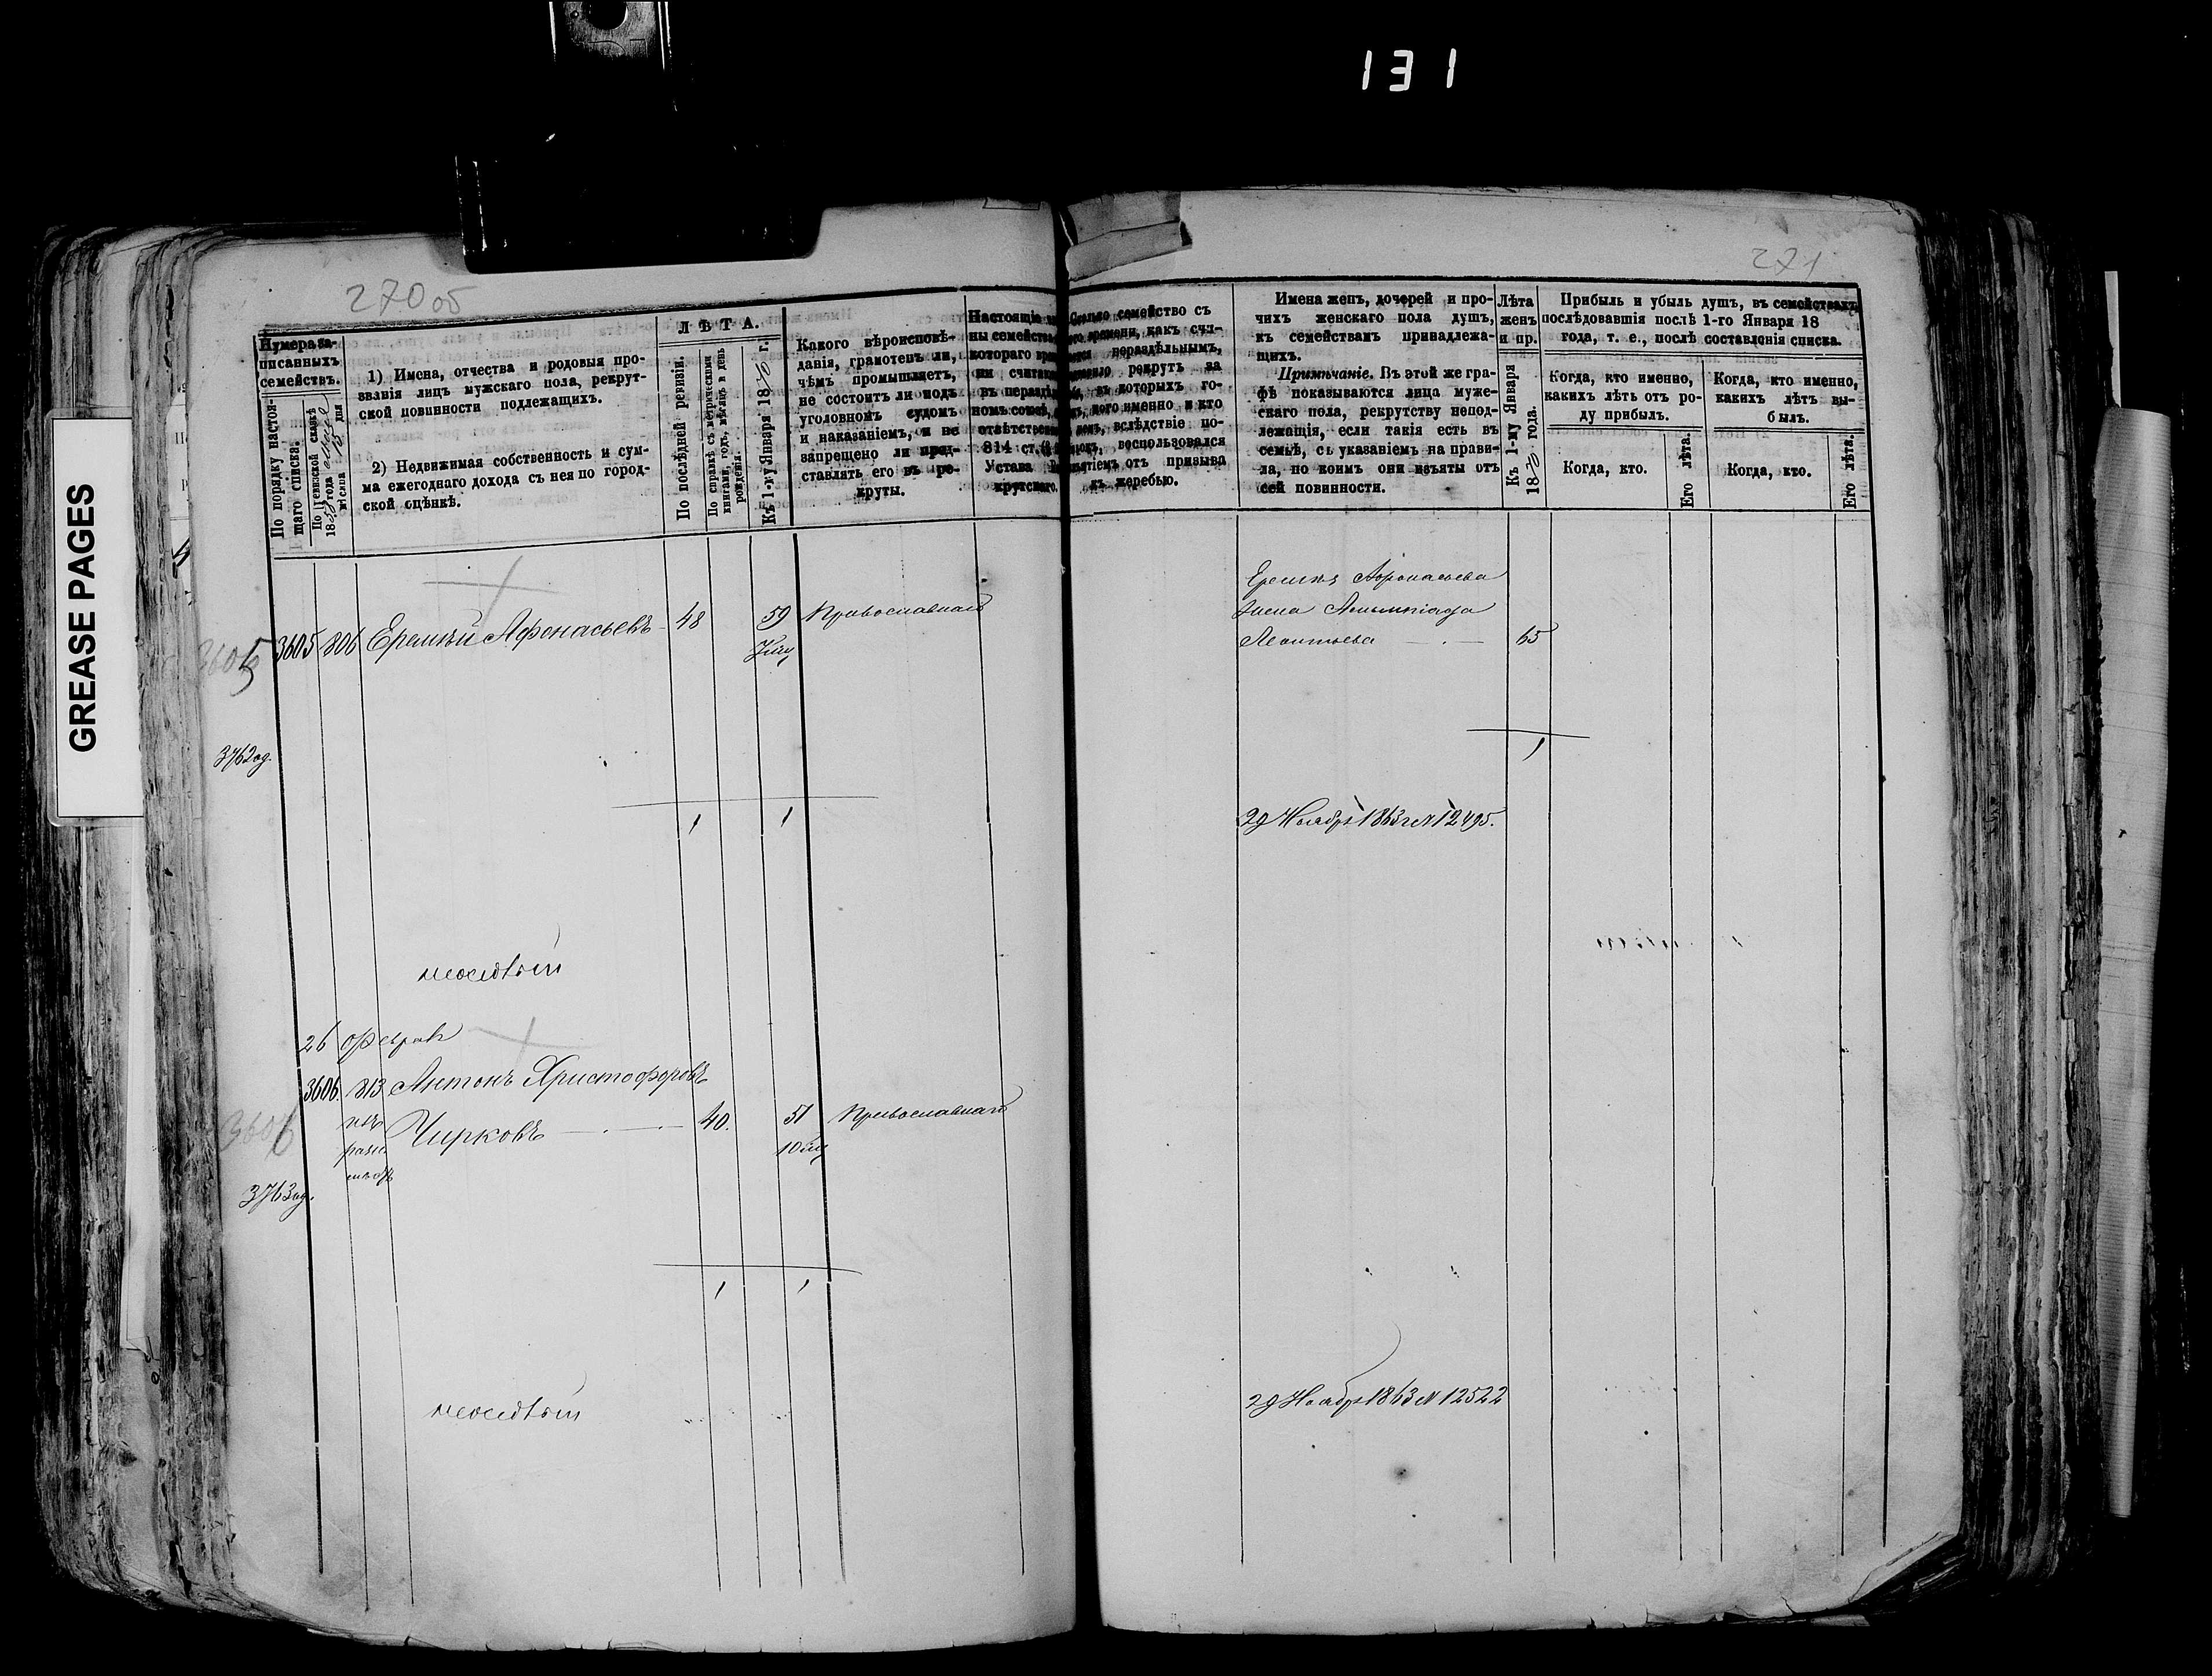 131
GREASE PAGES
270 об
271
Нумера за-
писанныхъ
семействъ.
По порядку настоя-
щаго списка.
По ревизской сказкѣ
18
года
мѣсяца
дня
1) Имена, отчества и родовыя про-
званія лицъ мужскаго пола, рекрут-
ской повинности подлежащихъ.
2) Недвижимая собственность и сум-
ма ежегоднаго дохода съ нея по город-
ской оцѣнкѣ.
ЛѢТА.
По послѣдней ревизіи.
По справкѣ съ метрическими
книгами, годъ, мѣсяцъ и день
рожденія.
Къ 1-му Января 1870 г.
Какого вѣроисповѣ-
данія, грамотенъ ли,
чѣмъ промышляетъ,
не состоитъ ли подъ
уголовномъ судомъ
и наказаніемъ, и не
запрещено ли пред-
ставлять его въ ре-
круты.
Настоящіе
ны семейства
котораго
ни считаю
въ нераздѣ
номъ союзѣ,
отвѣтствен
814 ст.
Устава
крутскаго.
семейство съ
времени, какъ счи-
нераздѣльнымъ,
рекрутъ на
въ которыхъ го-
кого именно и кто
вслѣдствіе по-
воспользовался
изъятіемъ отъ призыва
къ жеребью.
Имена женъ, дочерей и про-
чихъ женскаго пола душъ,
къ семействамъ принадлежа-
щихъ.
Примѣчаніе. Въ этой же гра-
фѣ показываются лица муже-
скаго пола, рекрутству непод-
лежащія, если такія есть въ
семьѣ, съ указаніемъ на прави-
ла, по коимъ они изъяты отъ
сей повинности.
Лѣта
женъ
и пр.
Къ 1-му Января
1870 года.
Прибыль и убыль душъ, въ семействахъ
послѣдовавшія послѣ 1-го Января 18
года, т. е., послѣ составленія списка.
Когда, кто именно,
какихъ лѣтъ отъ ро-
ду прибылъ.
Когда, кто именно,
какихъ лѣтъ вы-
былъ.
Когда, кто.
Его лѣта.
Когда, кто.
Его лѣта.
3605
3605 806 Еремѣй Афонасьевъ 48 59 Православнаго
Еремѣя Афонасьева
жена Алимпіада
Леонтьева 65
3762 од.
1 1
1
29 Ноября 1863 г № 12495.
неосѣдлый
26 Февраля
3606. 813 Антонъ Христофоровъ
3606
Чирковъ 40. 51 Православнаго
3763 од.
1 1
неосѣдлый
29 Ноября 1863 № 12522